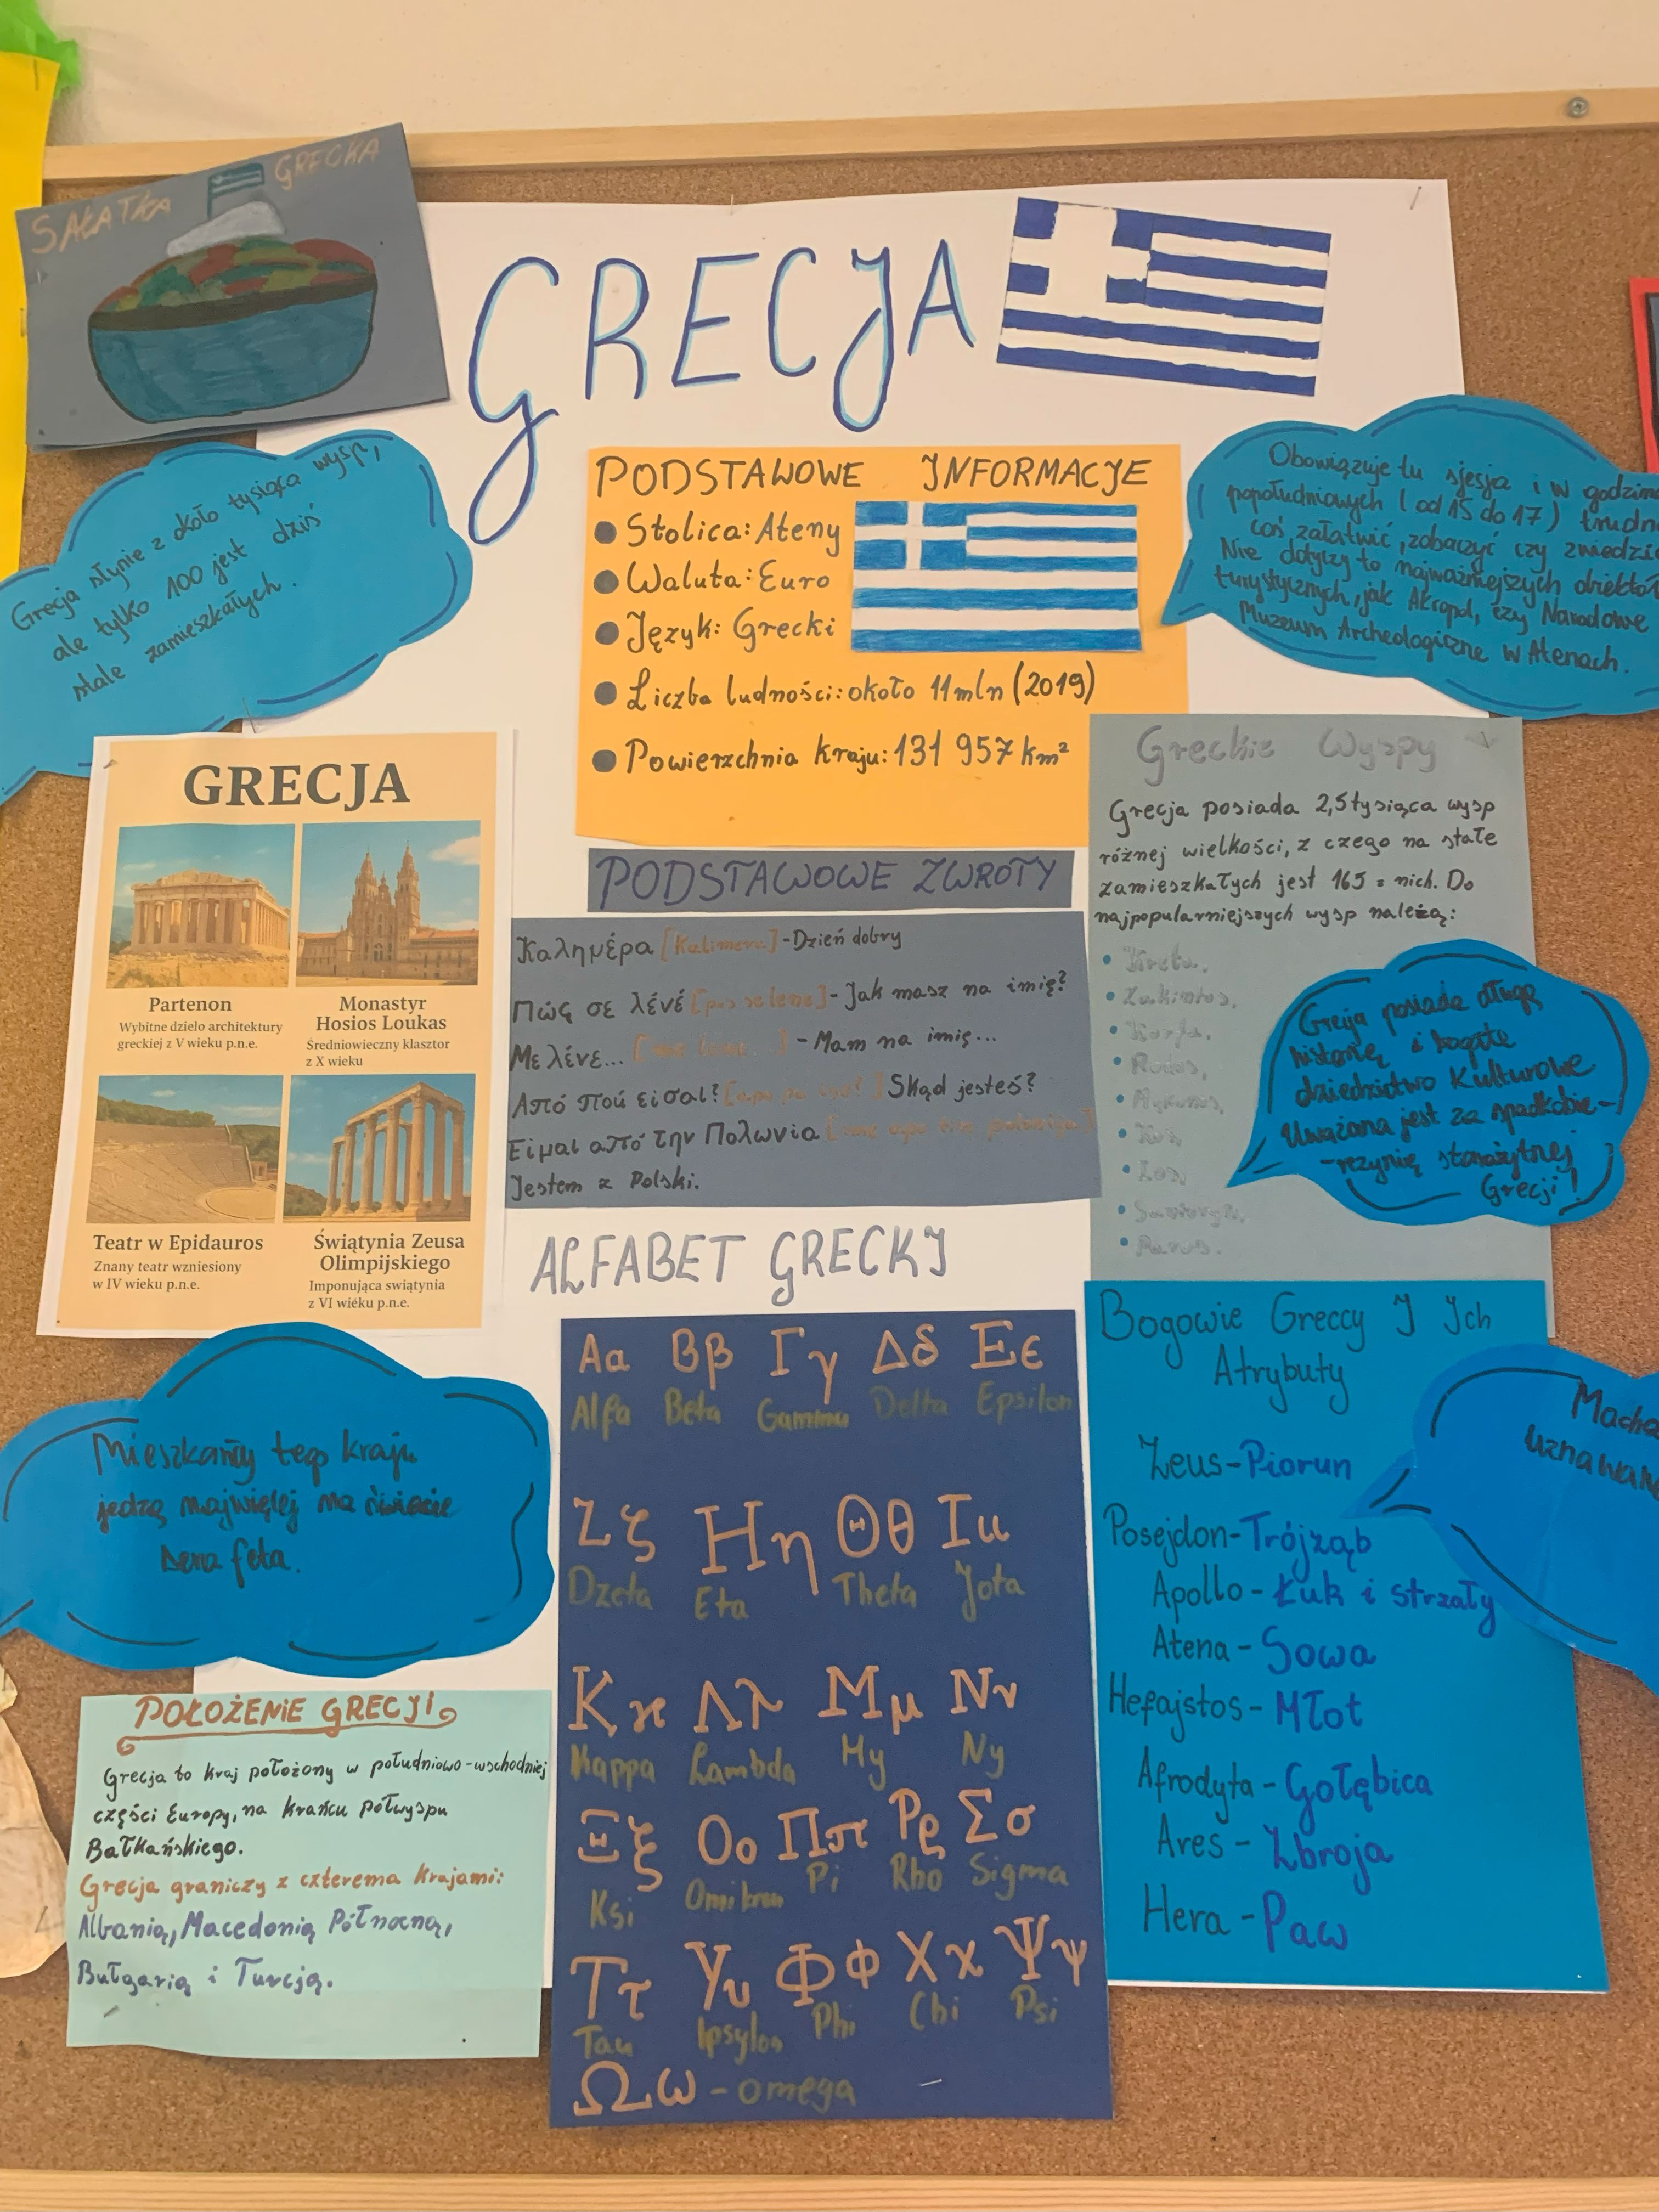 SAŁATKA GRECKA
GRECJA
Grecja słynie z około tysiąca wysp,
ale tylko 100 jest dziś
stale zamieszkałych.
PODSTAWOWE INFORMACJE
Stolica: Ateny
Waluta: Euro
Język: Grecki
Liczba ludności: około 11mln (2019)
Powierzchnia kraju: 131 957 km²
Obowiązuje tu sjesja i w
popołudniowych (od 15 do 17)
coś załatwić, zobaczyć czy
Nie dotyczy to najważniejszych
turystycznych, jak Akropol, czy Narodowe
Muzeum Archeologiczne w Atenach.
GRECJA
Partenon
Wybitne dzielo architektury
greckiej z V wieku p.n.e.
Monastyr
Hosios Loukas
Średniowieczny klasztor
z X wieku
Teatr w Epidauros
Znany teatr wzniesiony
w IV wieku p.n.e.
Świątynia Zeusa
Olimpijskiego
Imponująca swiątynia
z VI wiéku p.n.e.
PODSTAWOWE ZWROTY
Καλημέρα [Kalimera] - Dzień dobry
Πώς σε λένέ [pos se lene] - Jak masz na imię?
Με λένε... - Mam na imię...
Από πού είσαι? Skąd jesteś?
Είμαι από την Πολωνία
Jestem z Polski.
Greckie Wyspy
Grecja posiada 2,5 tysiąca wysp
różnej wielkości, z czego na stałe
zamieszkałych jest 165 z nich. Do
najpopularniejszych wysp należą:
Kreta,
Zakintos,
Korfu,
Rodos,
Mykonos,
Kos,
Santoryn,
Paros.
Grecja posiada długą
historię i bogate
dziedzictwo Kulturowe
Uważana jest za spadkobie-
-rczynię starożytnej
Grecji!
ALFABET GRECKI
Αα Ββ Γγ Δδ Εϵ
Alfa Beta Gamma Delta Epsilon
Ζζ Ηη Θθ Ιι
Dzeta Eta Theta Jota
Κϰ Λλ Μμ Νν
Kappa Lambda My Ny
Ξξ Οο Ππ Ρρ Σσ
Ksi Omikron Pi Rho Sigma
Ττ Υυ Φϕ Χχ Ψψ
Tau Ipsylon Phi Chi Psi
Ωω - omega
Bogowie Greccy I Ich
Atrybuty
Zeus - Piorun
Posejdon - Trójząb
Apollo - Łuk i strzały
Atena - Sowa
Hefajstos - Młot
Afrodyta - Gołębica
Ares - Zbroja
Hera - Paw
Mieszkańcy tego kraju
jedzą najwięcej na świecie
sera feta.
POŁOŻENIE GRECJI
Grecja to kraj położony w południowo-wschodniej
części Europy, na krańcu półwyspu
Bałkańskiego.
Grecja graniczy z czterema krajami:
Albanią, Macedonią Północną,
Bułgarią i Turcją.